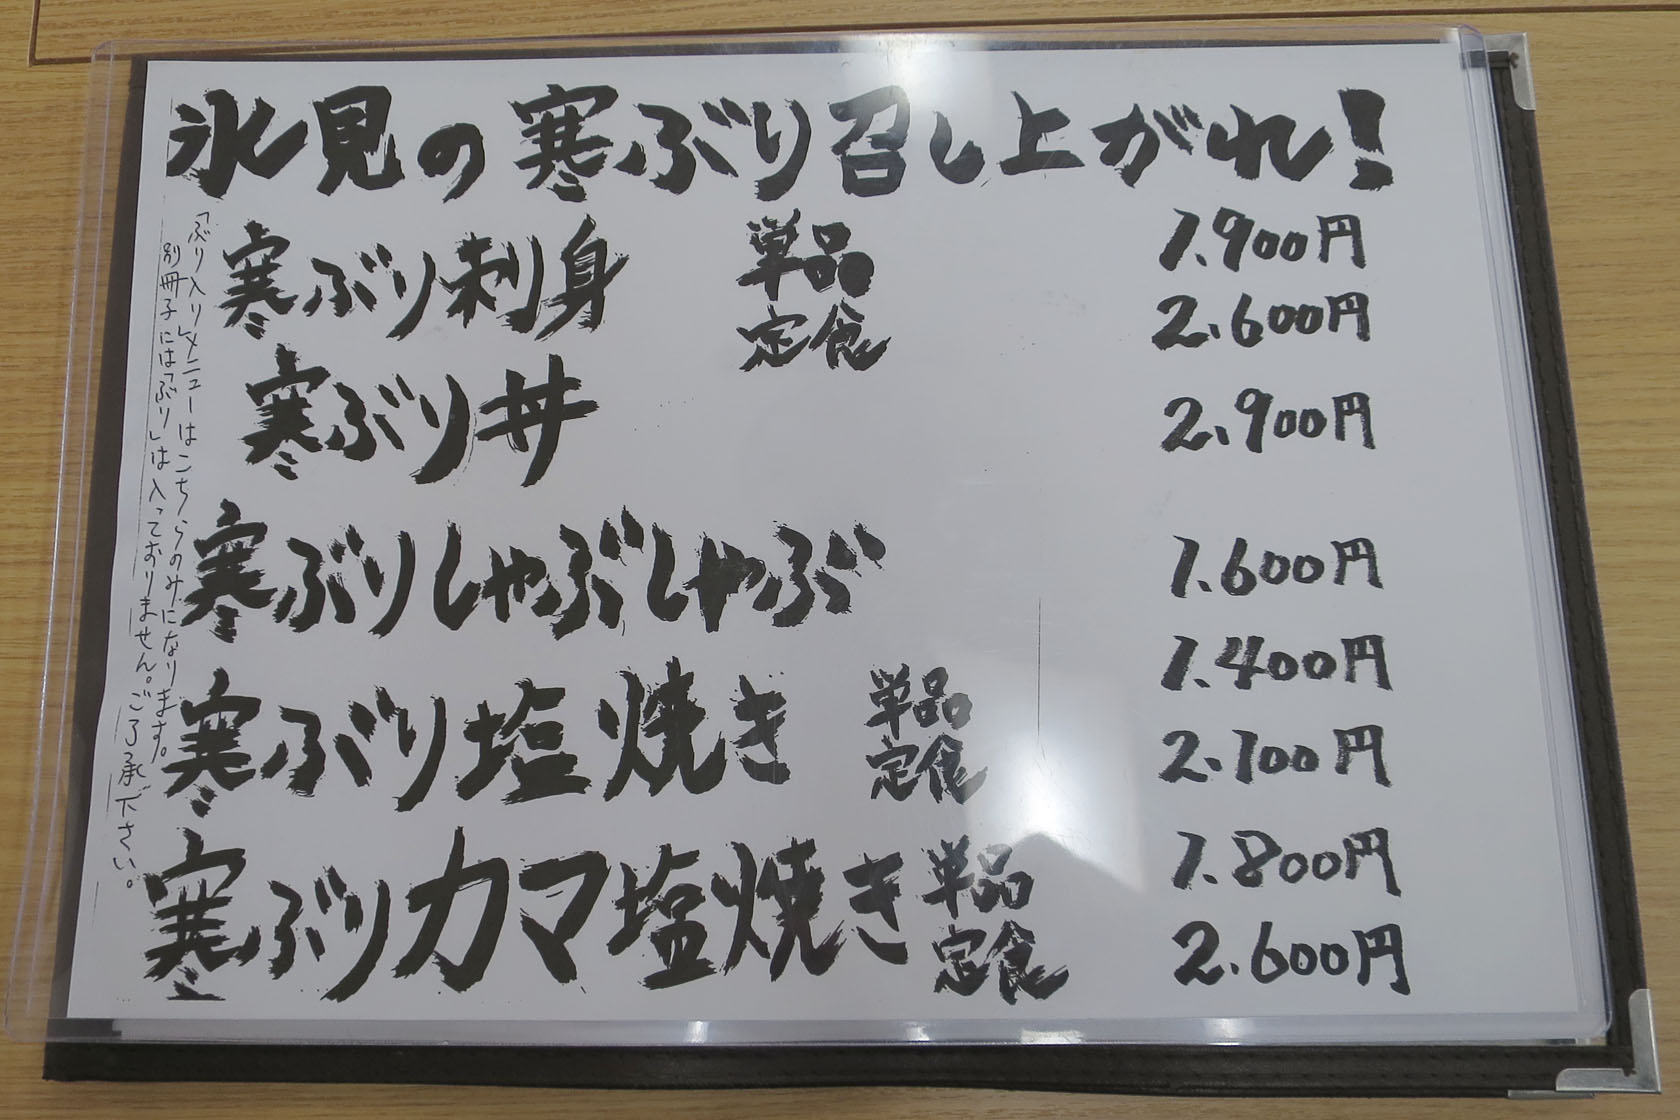 氷見の寒ぶり召し上がれ!
寒ぶり刺身 単品 1.900円
定食 2.600円
寒ぶり丼 2.900円
寒ぶりしゃぶしゃぶ 1.600円
寒ぶり塩焼き 単品 1.400円
定食 2.100円
寒ぶりカマ塩焼き 単品 1.800円
定食 2.600円
「ぶり入り」メニューはこちらのみになります。
別冊子には「ぶり」は入っておりません。ご了承下さい。